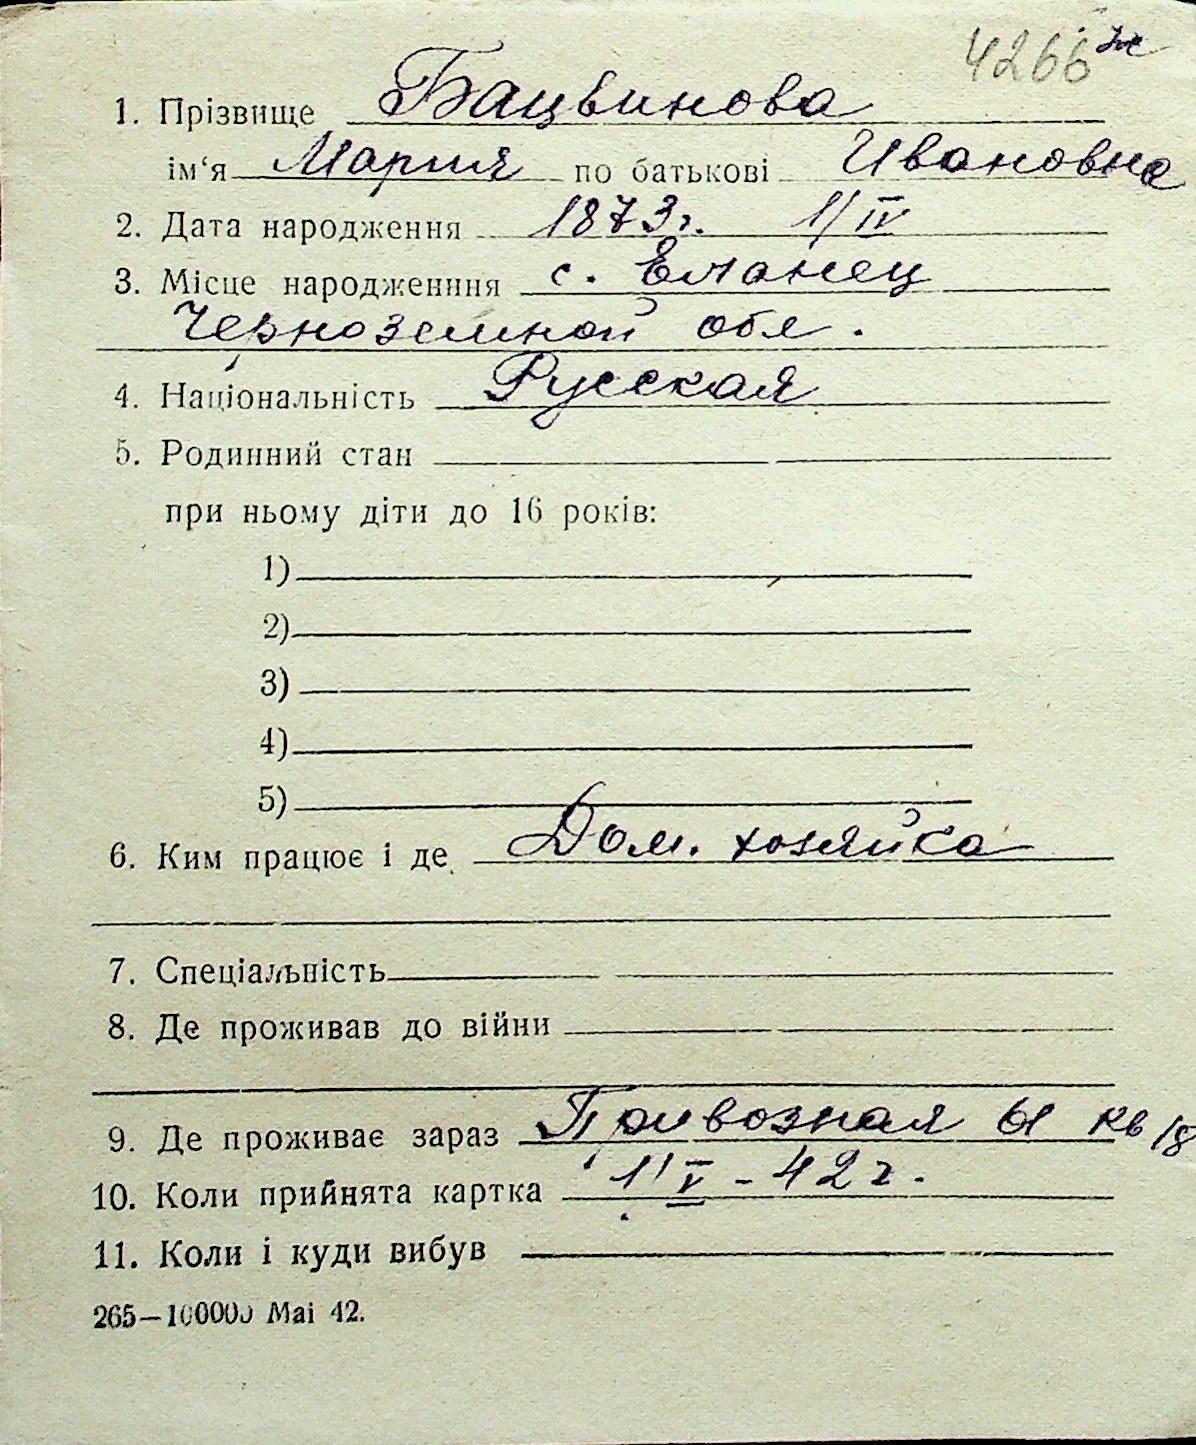 4266 ж
1. Прізвище Бацвинова
ім‘я Мария по батькові Ивановна
2. Дата народження 1873г. 1/IV
3. Місце народженння с. Еланец
Черноземной обл.
4. Національність Русская
5. Родинний стан
при ньому діти до 16 років:
1)
2)
3)
4)
5)
6. Ким працює і де Дом. хозяйка
7. Спеціальність
8. Де проживав до війни
9. Де проживає зараз Привозная 61 кв 18
10. Коли прийнята картка 1/V - 42 г.
11. Коли і куди вибув
265—100000 Mai 42.